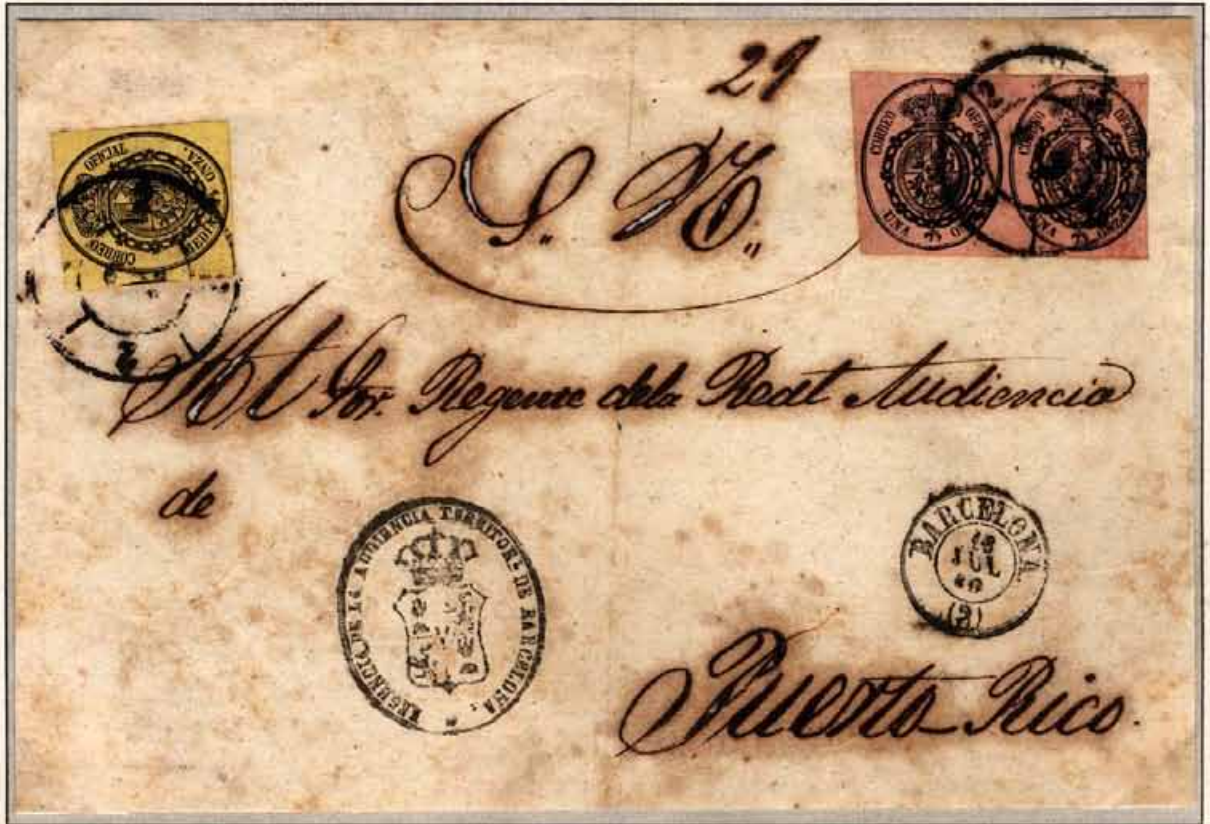 29
S. N.
CORREO OFICIAL UNA ONZA.
CORREO OFICIAL
MEDIA ONZA.
Al Sor. Regente dela Real Audiencia
de
REGENCIA DE LA AUDIENCIA TERRITORL. DE BARCELONA.
BARCELONA
JUL
(2)
Puerto-Rico.